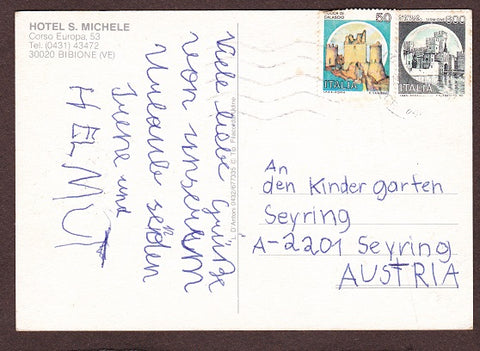 HOTEL S. MICHELE
Corso Europa, 53
Tel. (0431) 43472
30020 BIBIONE (VE)
Viele liebe Grüße
von unserem
Urlaub senden
Irene und
HELMUT
50
ROCCA DI
CALASCIO
ITALIA
600
ITALIA
An
den Kindergarten
Seyring
A-2201 Seyring
AUSTRIA